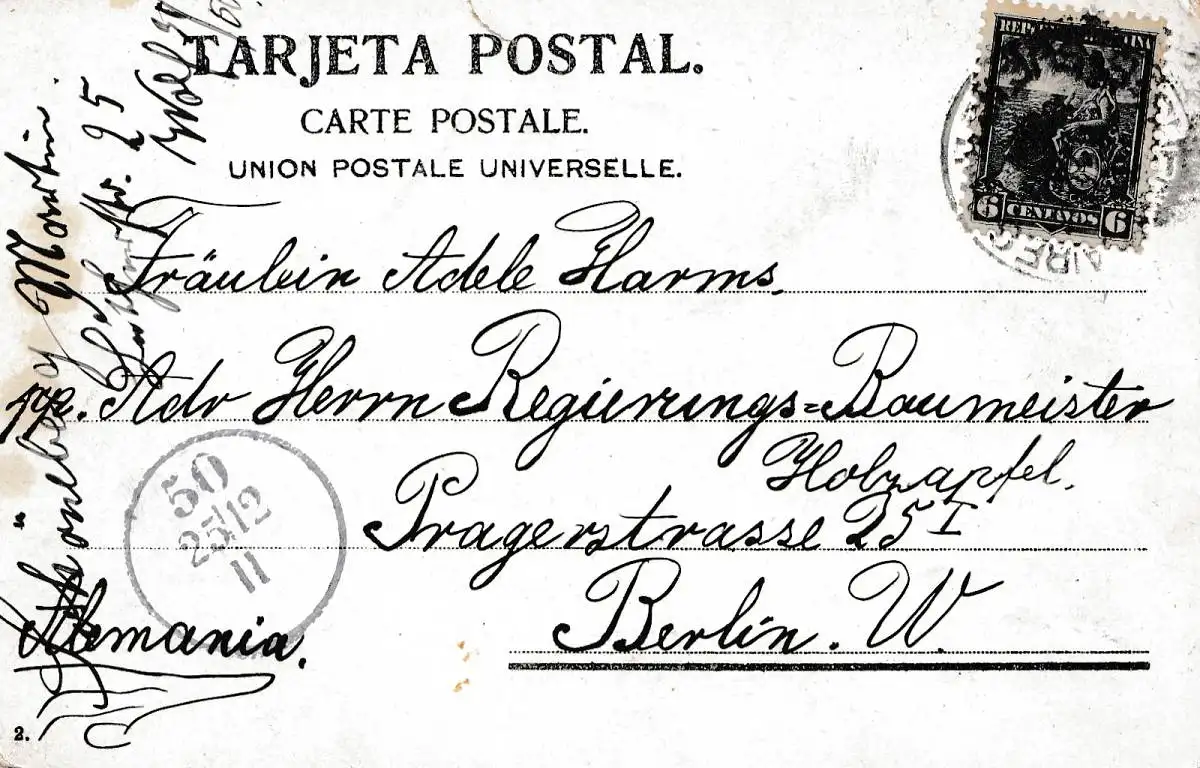 TARJETA POSTAL.
CARTE POSTALE.
UNION POSTALE UNIVERSELLE.
6 CENTAVOS 6
Fräulein Adele Harms.
Adr Herrn Regierungs=Baumeister
Holzapfel.
Pragerstrasse 25 I
Berlin. W.
Alemania.
50
25/12
11
2.
Schöneberg Martin
25